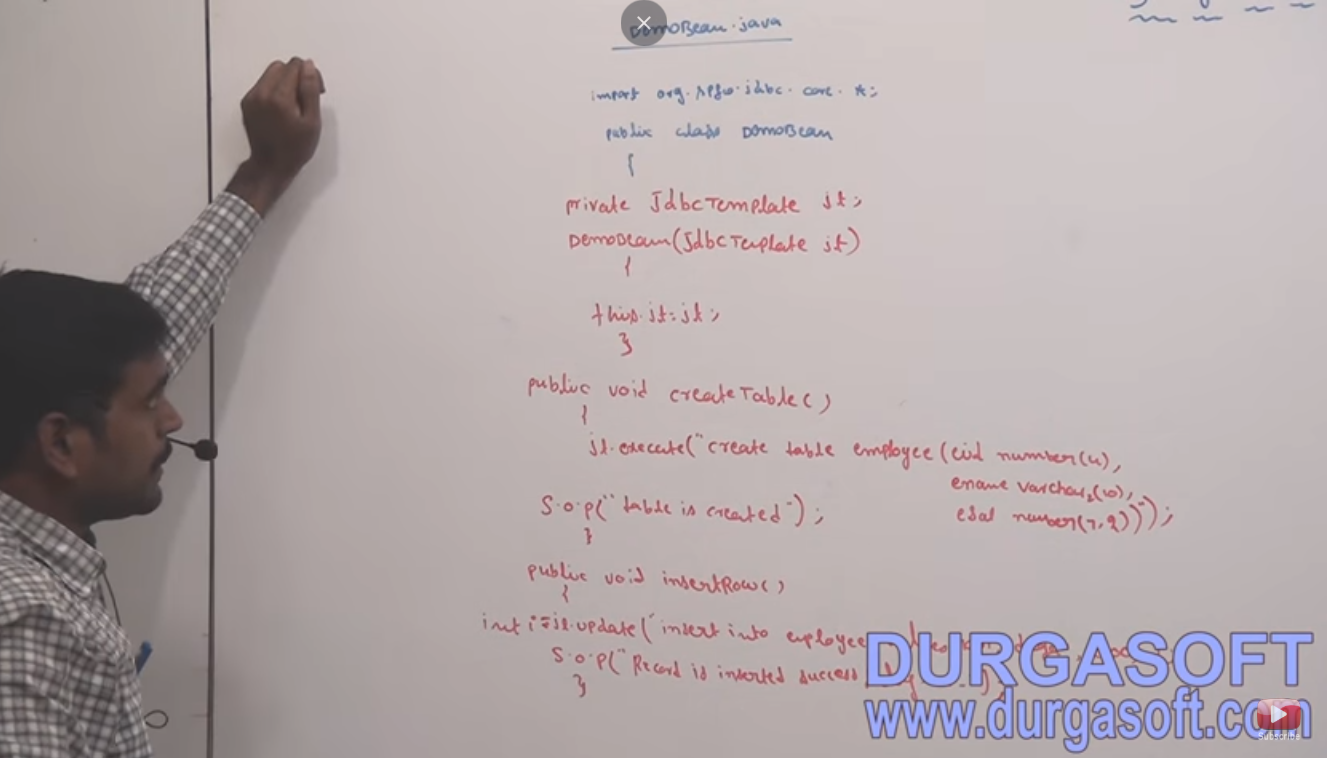 DemoBean.java
import org.spfw.jdbc.core.*;
public class DemoBean
{
private JdbcTemplate jt;
DemoBean(JdbcTemplate jt)
{
this.jt=jt;
}
public void createTable()
{
jt.execute("create table employee(eid number(4),
ename varchar2(10),
esal number(7,2))");
S.o.p("table is created");
}
public void insertRow()
{
int i=jt.update("insert into eployee
S.o.p("Record is inserted success
}
DURGASOFT
www.durgasoft.com
Subscribe